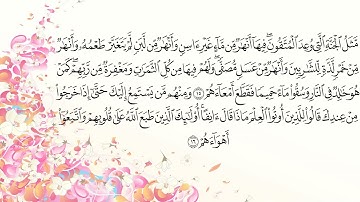 مَّثَلُ الْجَنَّةِ الَّتِي وُعِدَ الْمُتَّقُونَ ۖ فِيهَا أَنْهَارٌ مِّن مَّاءٍ غَيْرِ آسِنٍ وَأَنْهَارٌ مِّن لَّبَنٍ لَّمْ يَتَغَيَّرْ طَعْمُهُ وَأَنْهَارٌ
مِّنْ خَمْرٍ لَّذَّةٍ لِّلشَّارِبِينَ وَأَنْهَارٌ مِّنْ عَسَلٍ مُّصَفًّى ۖ وَلَهُمْ فِيهَا مِن كُلِّ الثَّمَرَاتِ وَمَغْفِرَةٌ مِّن رَّبِّهِمْ ۖ كَمَنْ
هُوَ خَالِدٌ فِي النَّارِ وَسُقُوا مَاءً حَمِيمًا فَقَطَّعَ أَمْعَاءَهُمْ ١٥ وَمِنْهُم مَّن يَسْتَمِعُ إِلَيْكَ حَتَّىٰ إِذَا خَرَجُوا
مِنْ عِندِكَ قَالُوا لِلَّذِينَ أُوتُوا الْعِلْمَ مَاذَا قَالَ آنِفًا ۚ أُولَٰئِكَ الَّذِينَ طَبَعَ اللَّهُ عَلَىٰ قُلُوبِهِمْ وَاتَّبَعُوا
أَهْوَاءَهُمْ ١٦